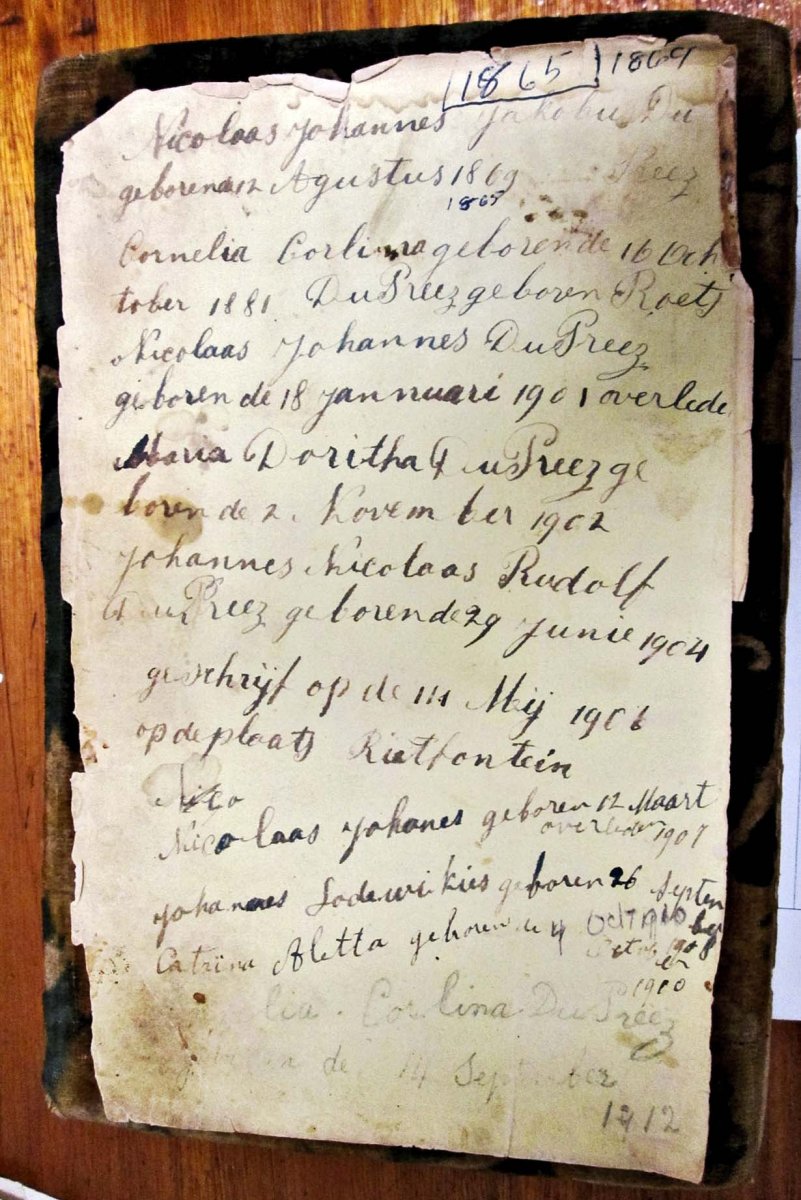 1865 1869
Nicolaas Johannes Jakobu Du
geboren 12 Agustus 1869 Preez
1865
Cornelia Corlina geboren de 16 Och
tober 1881 Du Preez geboren Roets
Nicolaas Johannes Du Preez
geboren de 18 Jannuari 1901 overlede
Maria Doritha Du Preez ge
boren de 2. November 1902
Johannes Nicolaas Rudolf
Du Preez geboren de 29 Junie 1904
geschrijf op de 14 Meij 1906
op de plaats Rietfontein
Nico
Nicolaas Johanes geboren 12 Maart
overleden 1907
Johannes Lodewikies geboren 26 Septem
ber 1908
Catrina Aletta geboren de 4 Oct 1910
1910
lia Corlina Du Preez
de 14 September
1912